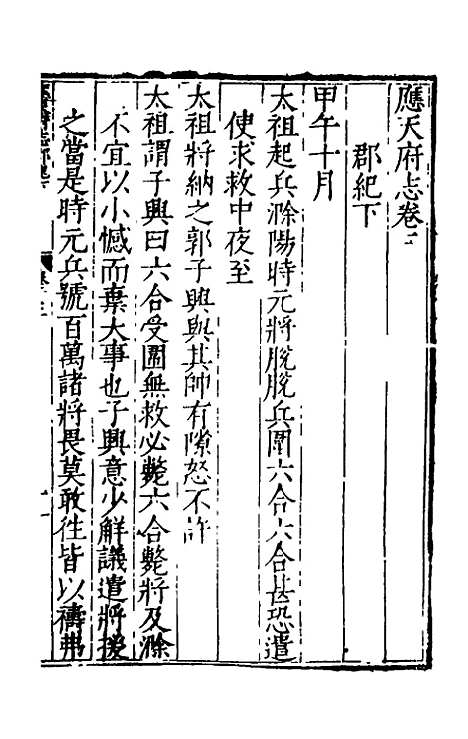 應天府志卷三
郡紀下
甲午十月
太祖起兵滁陽時元將脫脫兵圍六合六合甚恐遣
使求救中夜至
太祖將納之郭子興與其帥有隙怒不許
太祖謂子興曰六合受圍無救必斃六合斃將及滁
不宜以小憾而棄大事也子興意少解議遣將援
之當是時元兵號百萬諸將畏莫敢往皆以禱弗